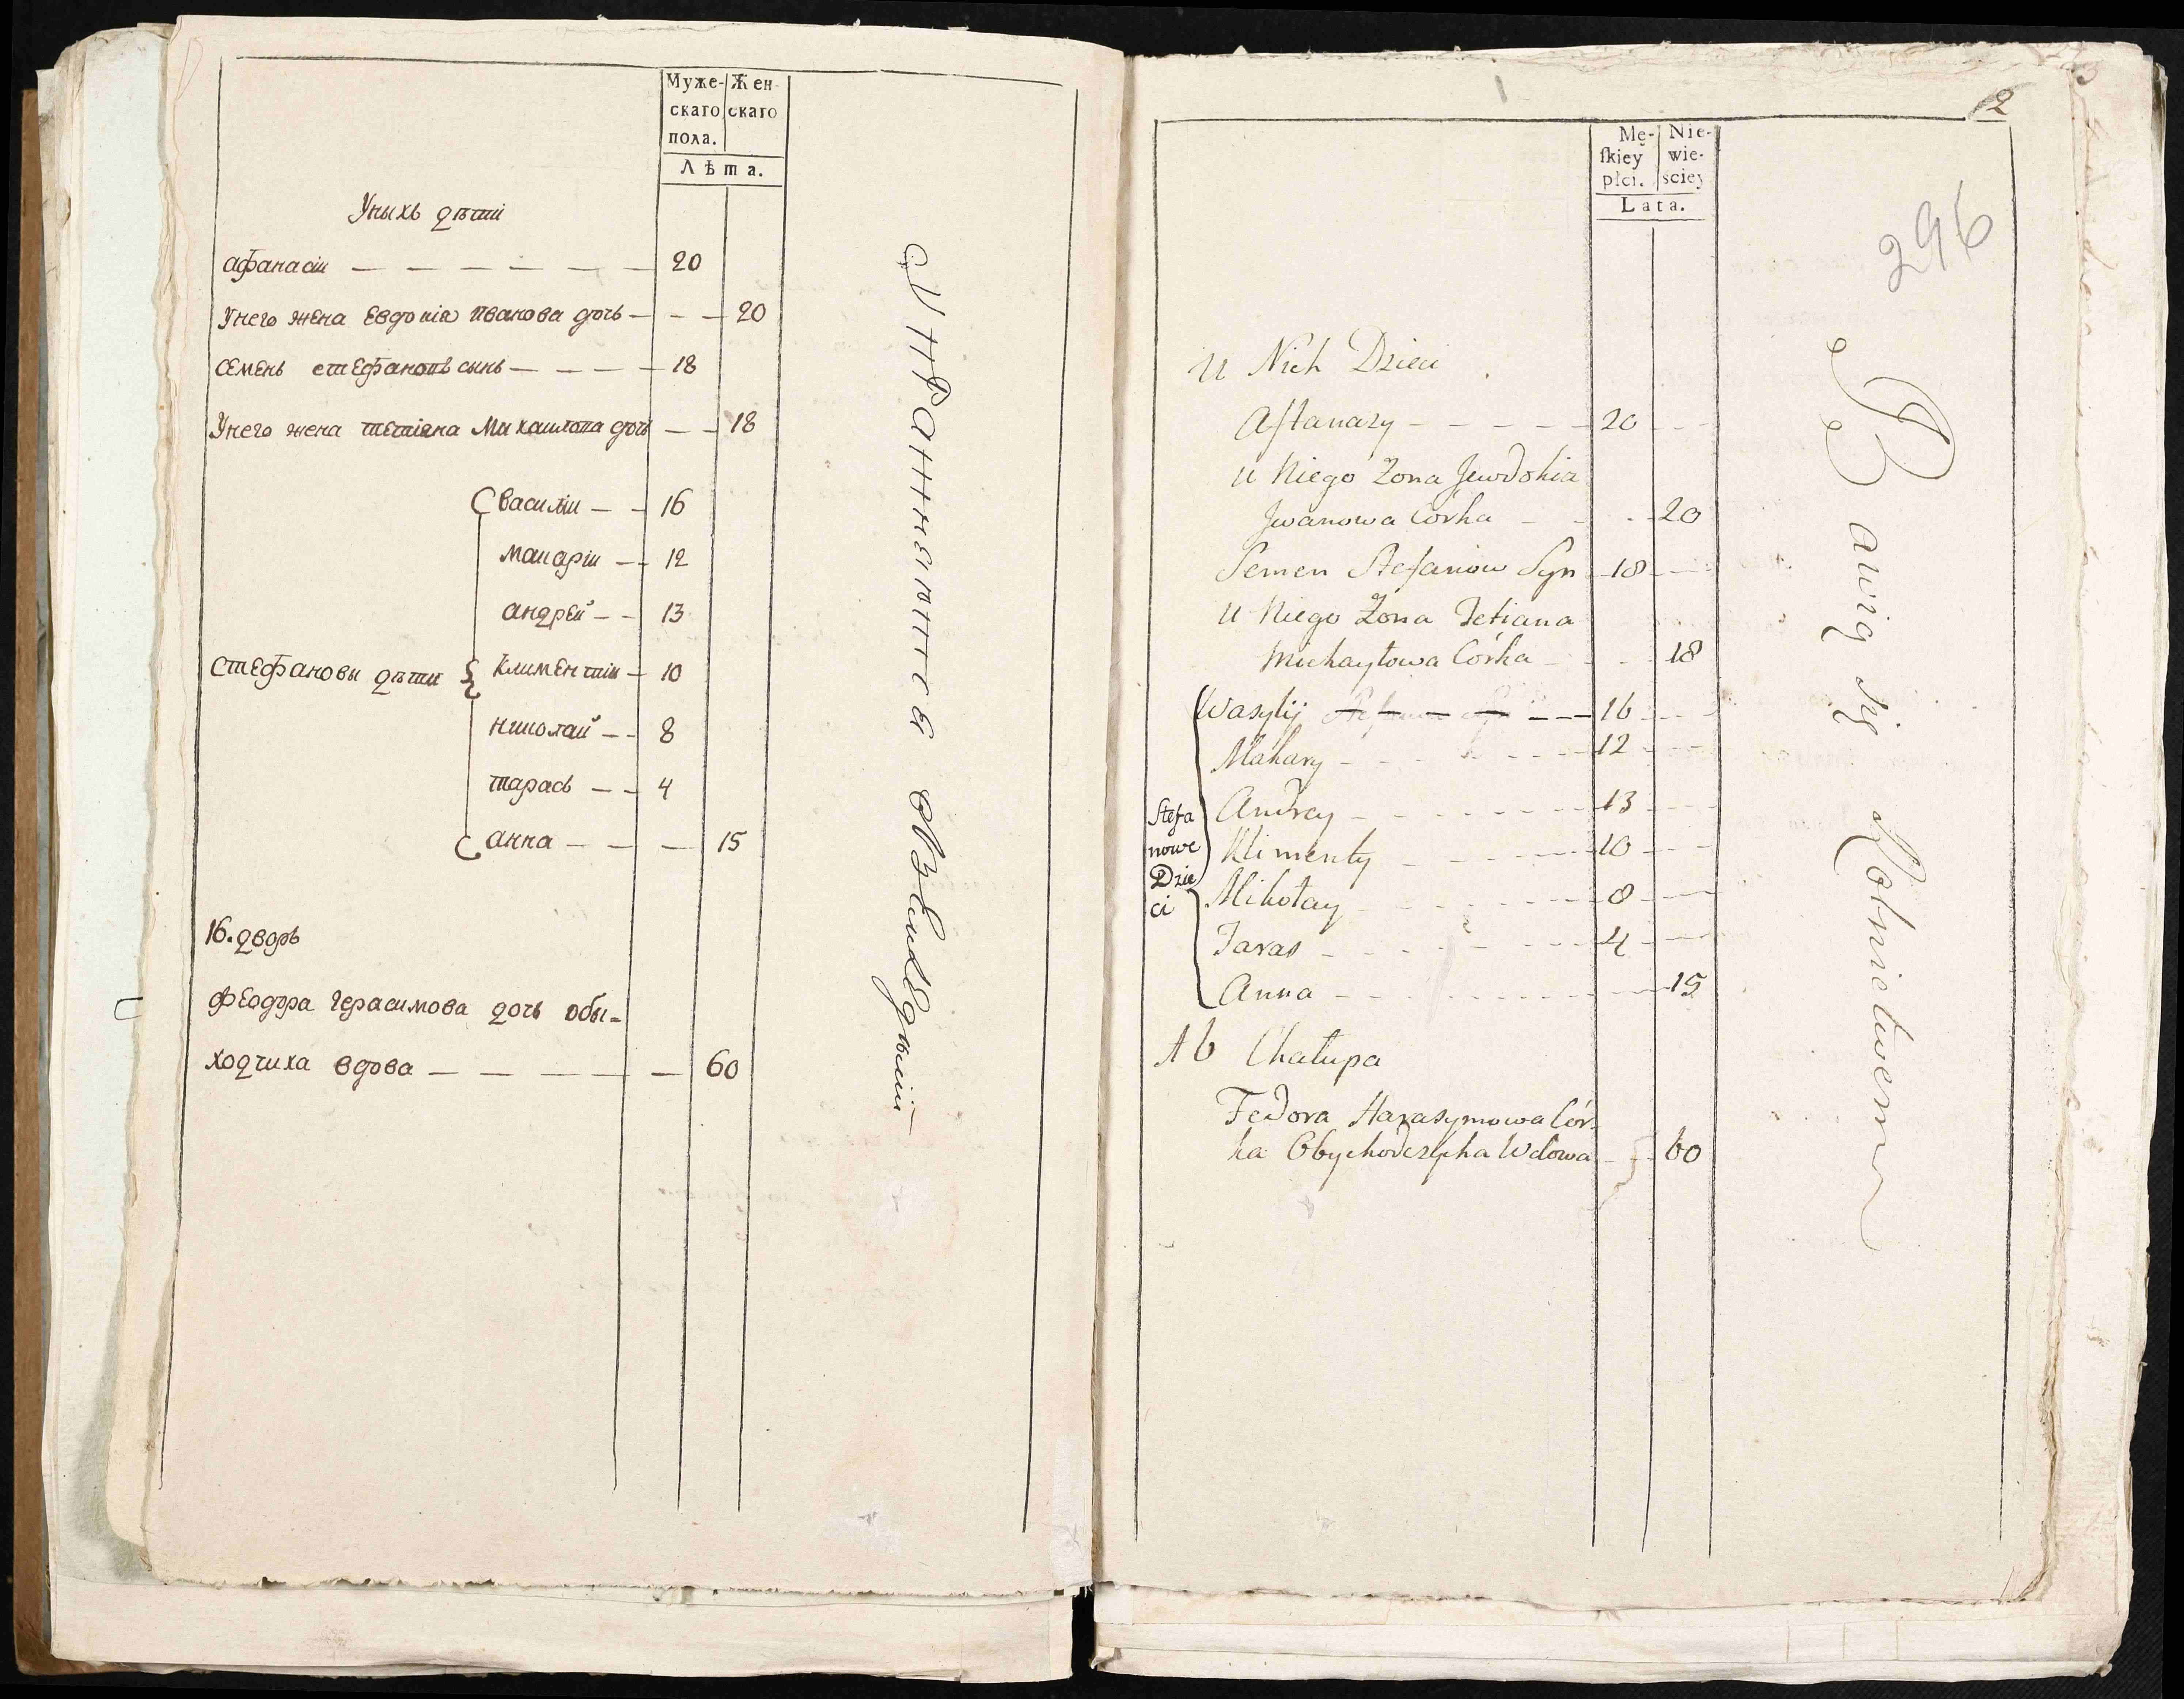 Муже-
скаго
пола.
Жен-
скаго
Лѣта.
Уныхъ дѣти
афанасіи — — — — — — 20
Унего жена Евдокіа Иванова дочь — — — 20
семенъ стефановъ сынъ — — — — 18
Унего жена тетіяна Михаилова дочь — — 18
василіи — — 16
макаріи — 12
андрей — — 13
стефановы дѣти
климентіи — 10
николай — — 8
тарасъ — — 4
анна — — — — 15
16. дворъ
феодора герасимова дочь обы=
ходчиха вдова — — — — — — 60
упражняются въ земледѣліи
12
296
Mę-
ſkiey
płci.
Nie-
wie-
sciey
Lata.
U Nich Dzieci
Aftanazy — — — — — 20
U Niego Żona Jewdokia
Jwanowa Córka — — — 20
Semen Stefanów Syn — 18
U Niego Żona Tetiana
Michayłowa Córka — — — 18
Wasylij — — 16
Makary — — — 12
Andrey — — — 13
Stefa
nowe
Dzie
ci
Klimenty — — — 10
Mikołay — — — 8
Taras — — — 4
Anna — — — 15
16 Chałupa
Fedora Harasymowa Cór-
ka Obychodczycha Wdowa — 60
Bawią się Rolnictwem